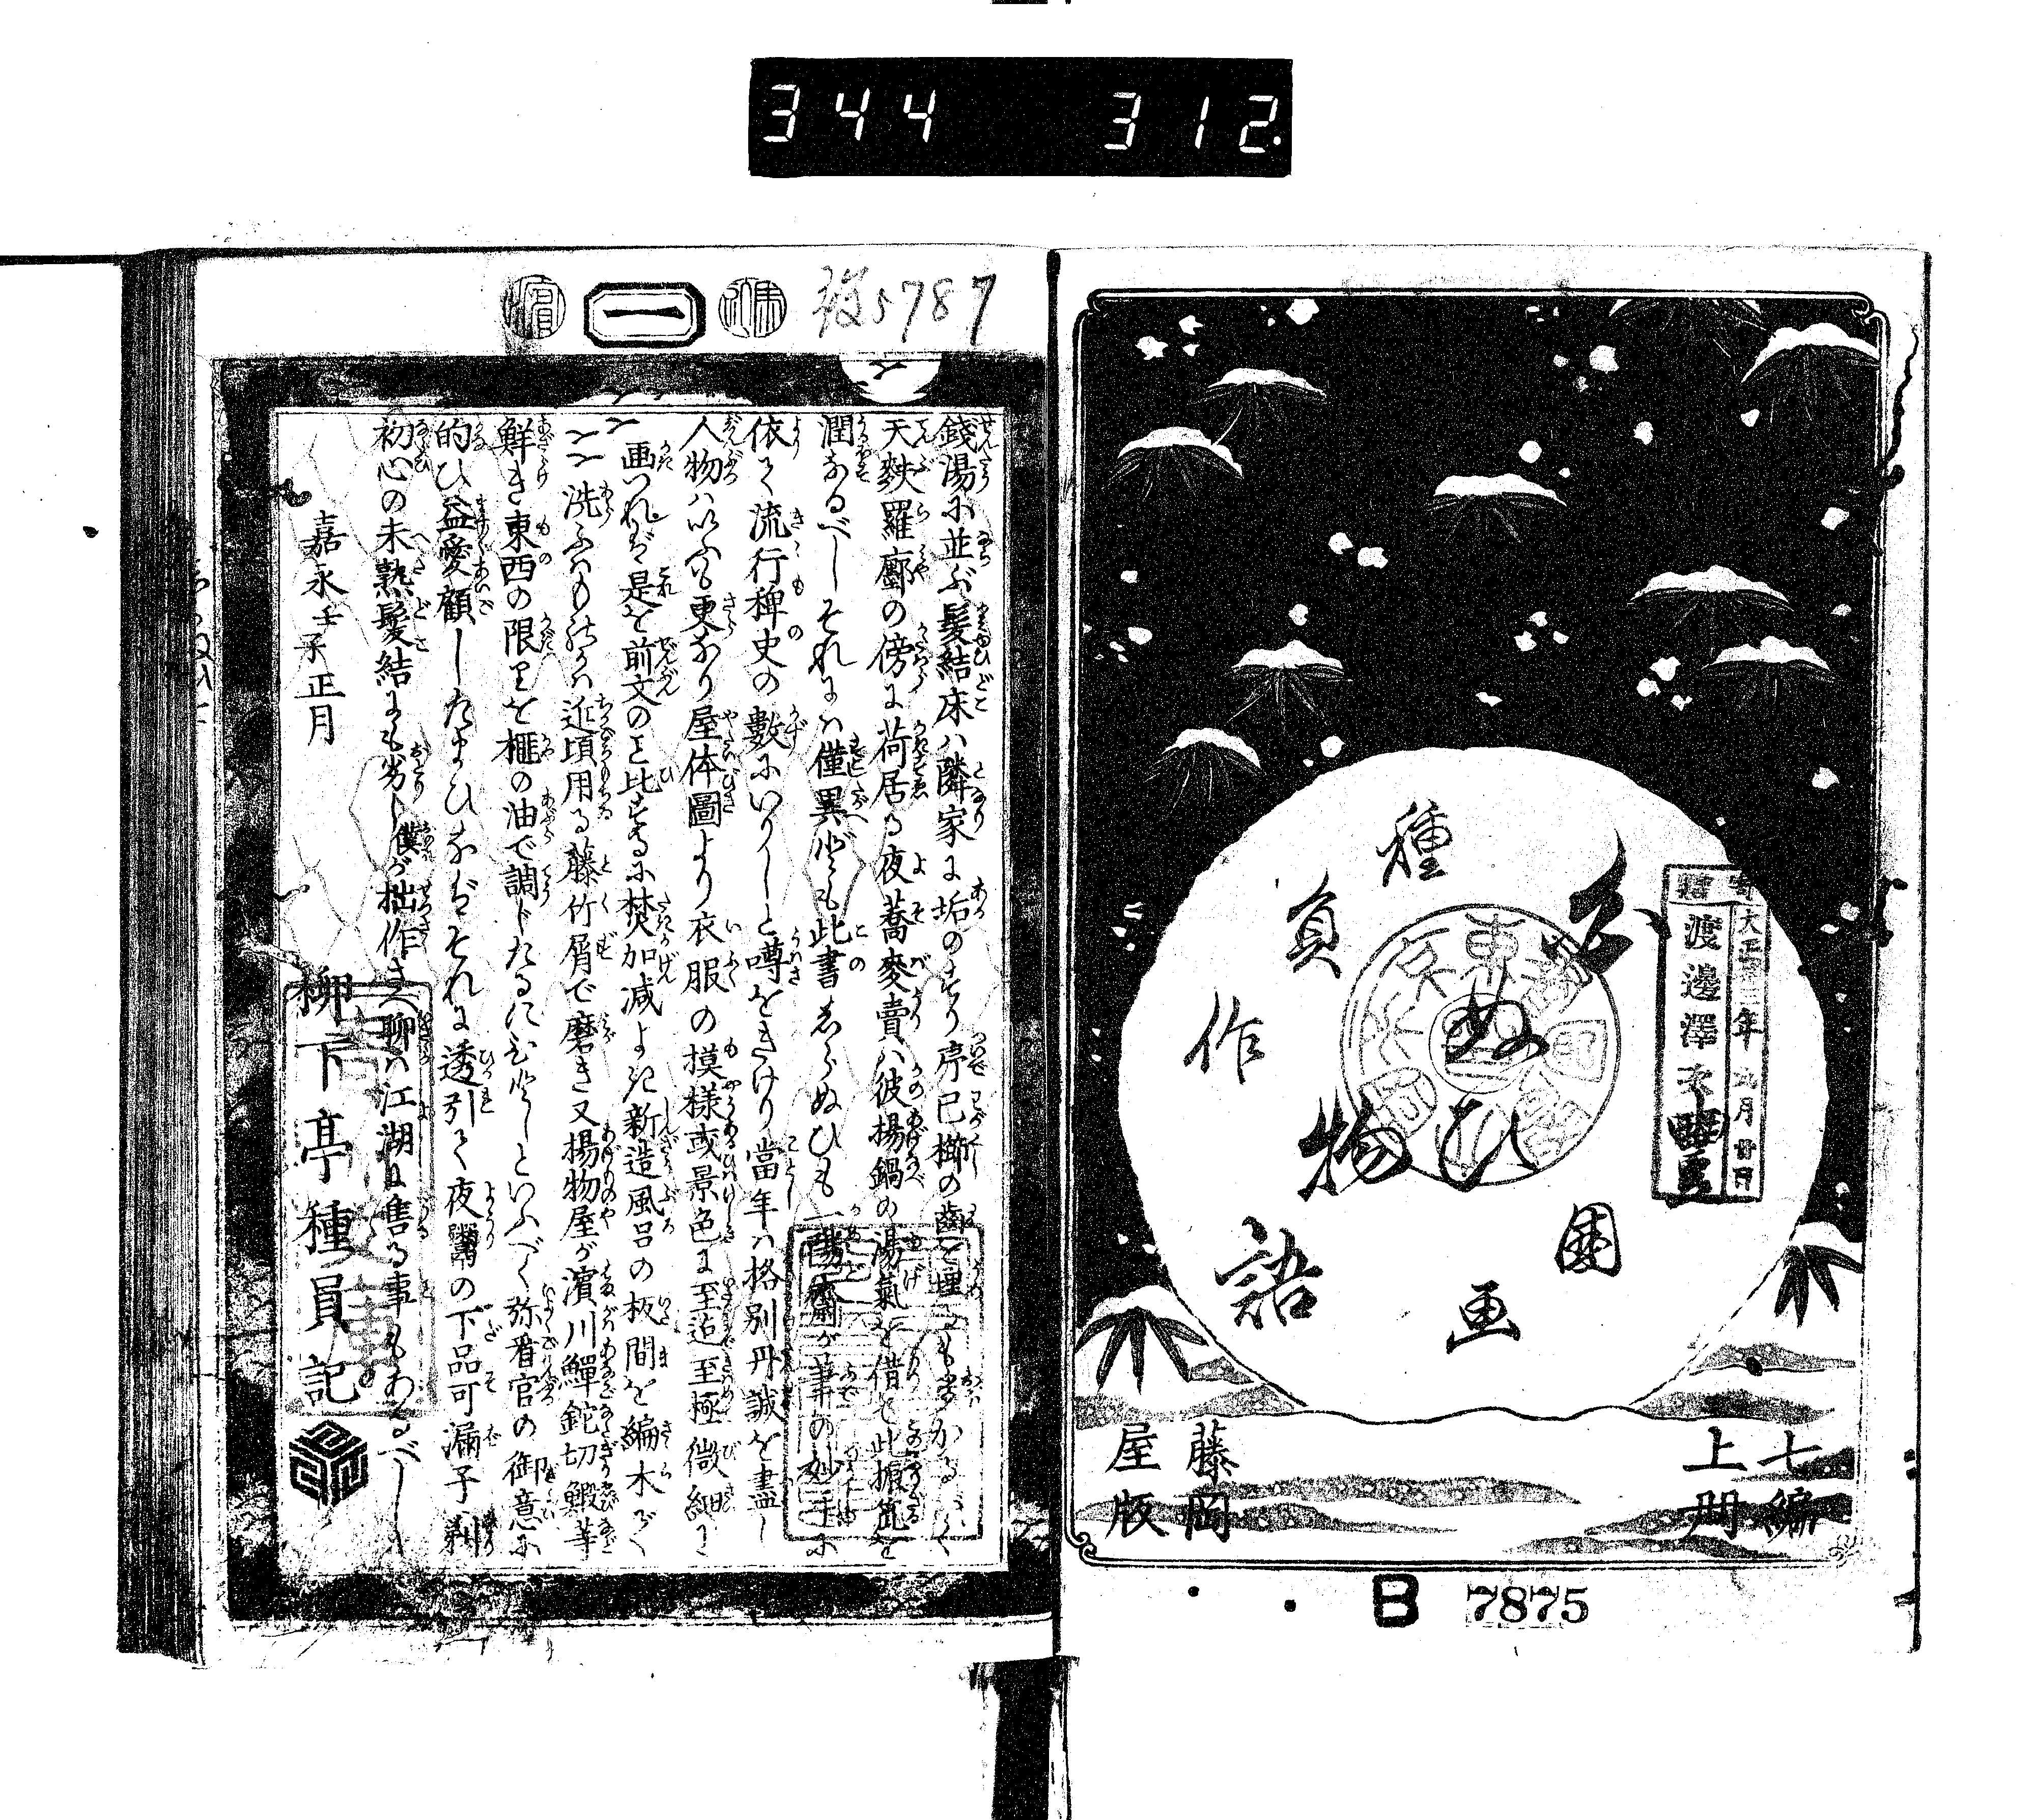 344 312
種
員
作
しらぬひ
物
語
國
画
大正三年九月廿日
渡邊澤
東京
七編
上冊
藤岡
屋版
B 7875
5787
一
文
錢湯に並ぶ髪結床ハ隣家に垢のすり序已櫛の齒を埋るも
天麩羅鄽の傍に荷居る夜蕎麥賣ハ彼揚鍋の湯氣を借て此
潤なるべしそれにハ僅異ども此書しらぬひも一陽齋が筆の妙手に
依て流行稗史の數にいりしと噂をきけり當年ハ格別丹誠を盡し
人物ハいふも更なり屋体圖より衣服の摸様或景色に至迠至極微細に
画つれバ是を前文のに比するに焚加减よき新造風呂の板間を編木で
洗ふハ近頃用る藤竹屑で磨き又揚物屋が濵川鱓鉈切鰕等
鮮き東西の限りを榧の油で調じたるにといふべく弥看官の御意に
的ひ益愛顧したまひなバそれに透引て夜鬻の下品可漏子剃
初心の未熟髪結にも劣し僕が拙作さへ聊ハ江湖に售る事もあるべし
嘉永壬子正月
柳下亭種員記